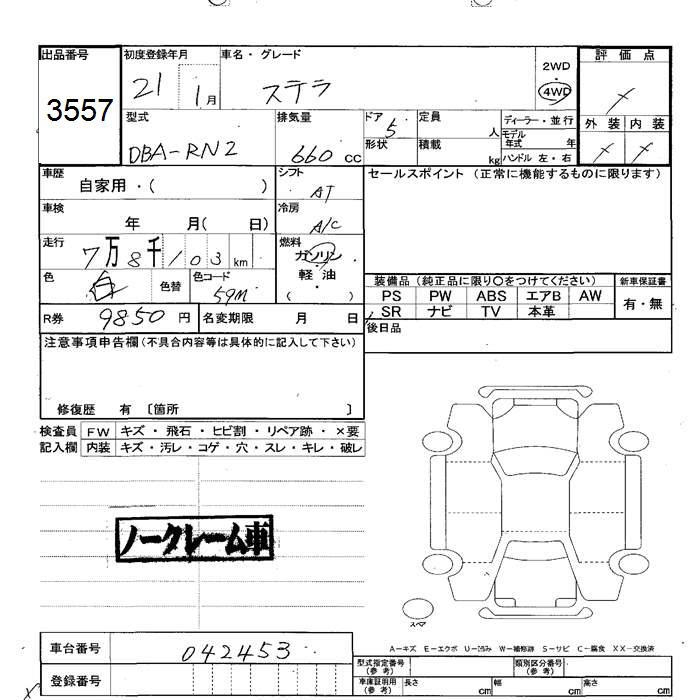 出品番号 初度登録年月 車名・グレード 評価点
3557 21 1月 ステラ 2WD ・ 4WD
型式 排気量 ドア 定員 ディーラー・並行 外装 内装
DBA-RN2 660 cc 5 人 モデル年式 年
形状 積載 kg ハンドル 左・右
車歴 自家用・( ) シフト AT セールスポイント (正常に機能するものに限ります)
車検 年 月( 日) 冷房 A/C
走行 7万8千103 km 燃料 ガソリン・軽油 ( )
色 白 色替 色コード 59M
装備品 (純正品に限り○をつけてください) 新車保証書
PS PW ABS エアB AW 有・無
SR ナビ TV 本革
R券 9850 円 名変期限 月 日
後日品
注意事項申告欄(不具合内容等は具体的に記入して下さい)
修復歴 有 〔箇所 〕
検査員 FW キズ・飛石・ヒビ割・リペア跡・×要
記入欄 内装 キズ・汚レ・コゲ・穴・スレ・キレ・破レ
ノークレーム車
スペア
A−キズ E−エクボ U−凹み W−補修跡 S−サビ C−腐食 XX−交換済
車台番号 042453
型式指定番号(参考) 類別区分番号(参考)
登録番号
車庫証明用(参考) 長さ cm 幅 cm 高さ cm